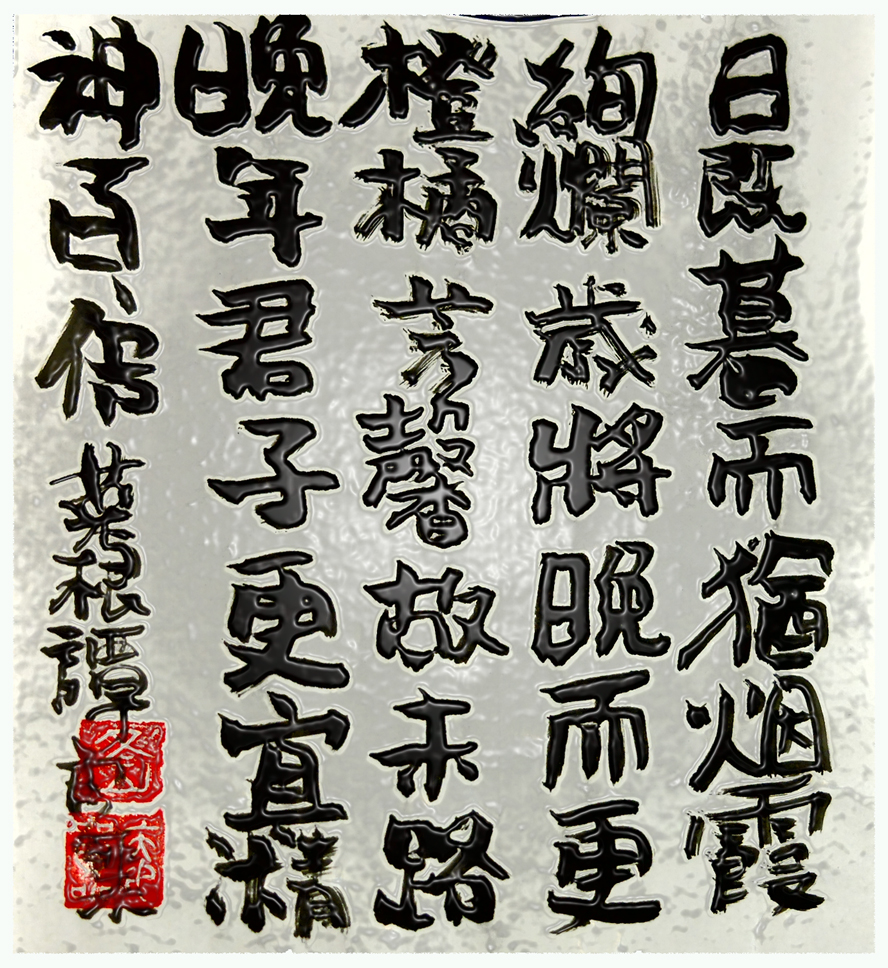 日既暮而猶烟霞
絢爛歲將晚而更
橙橘芳馨故末路
晚年君子更宜精
神百倍
菜根譚